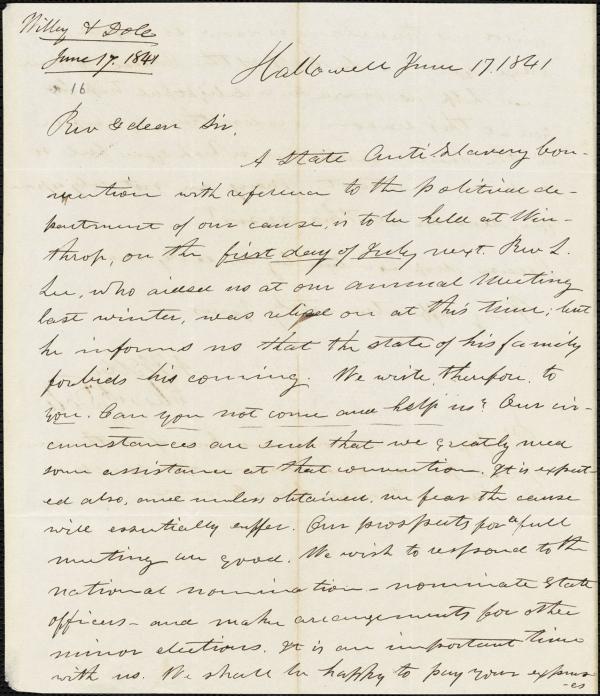 Willey & Dole
June 17. 1841
16
Hallowell June 17. 1841
Rev & dear Sir,
A State Anti Slavery Con-
vention with reference to the political de-
partment of our cause, is to be held at Win-
throp, on the first day of July next. Rev L.
Lee, who aided us at our annual Meeting
last winter, was relied on at this time; but
he informs us that the state of his family
forbids his coming. We write, therefore, to
you. Can you not come and help us? Our cir-
cumstances are such that we greatly need
some assistance at that convention. It is expect-
ed also, and unless obtained, we fear the cause
will essentially suffer. Our prospects for a full
meeting are good. We wish to respond to the
national nomination - nominate State
officers - and make arrangements for other
minor elections. It is an important time
with us. We shall be happy to pay your expens-
es